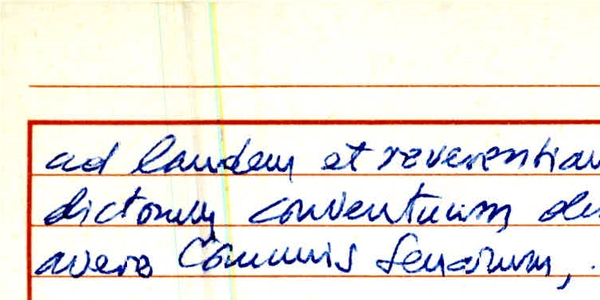 ad laudem et reverentiam
dictorum conventuum de
avere Comunis Senarum,